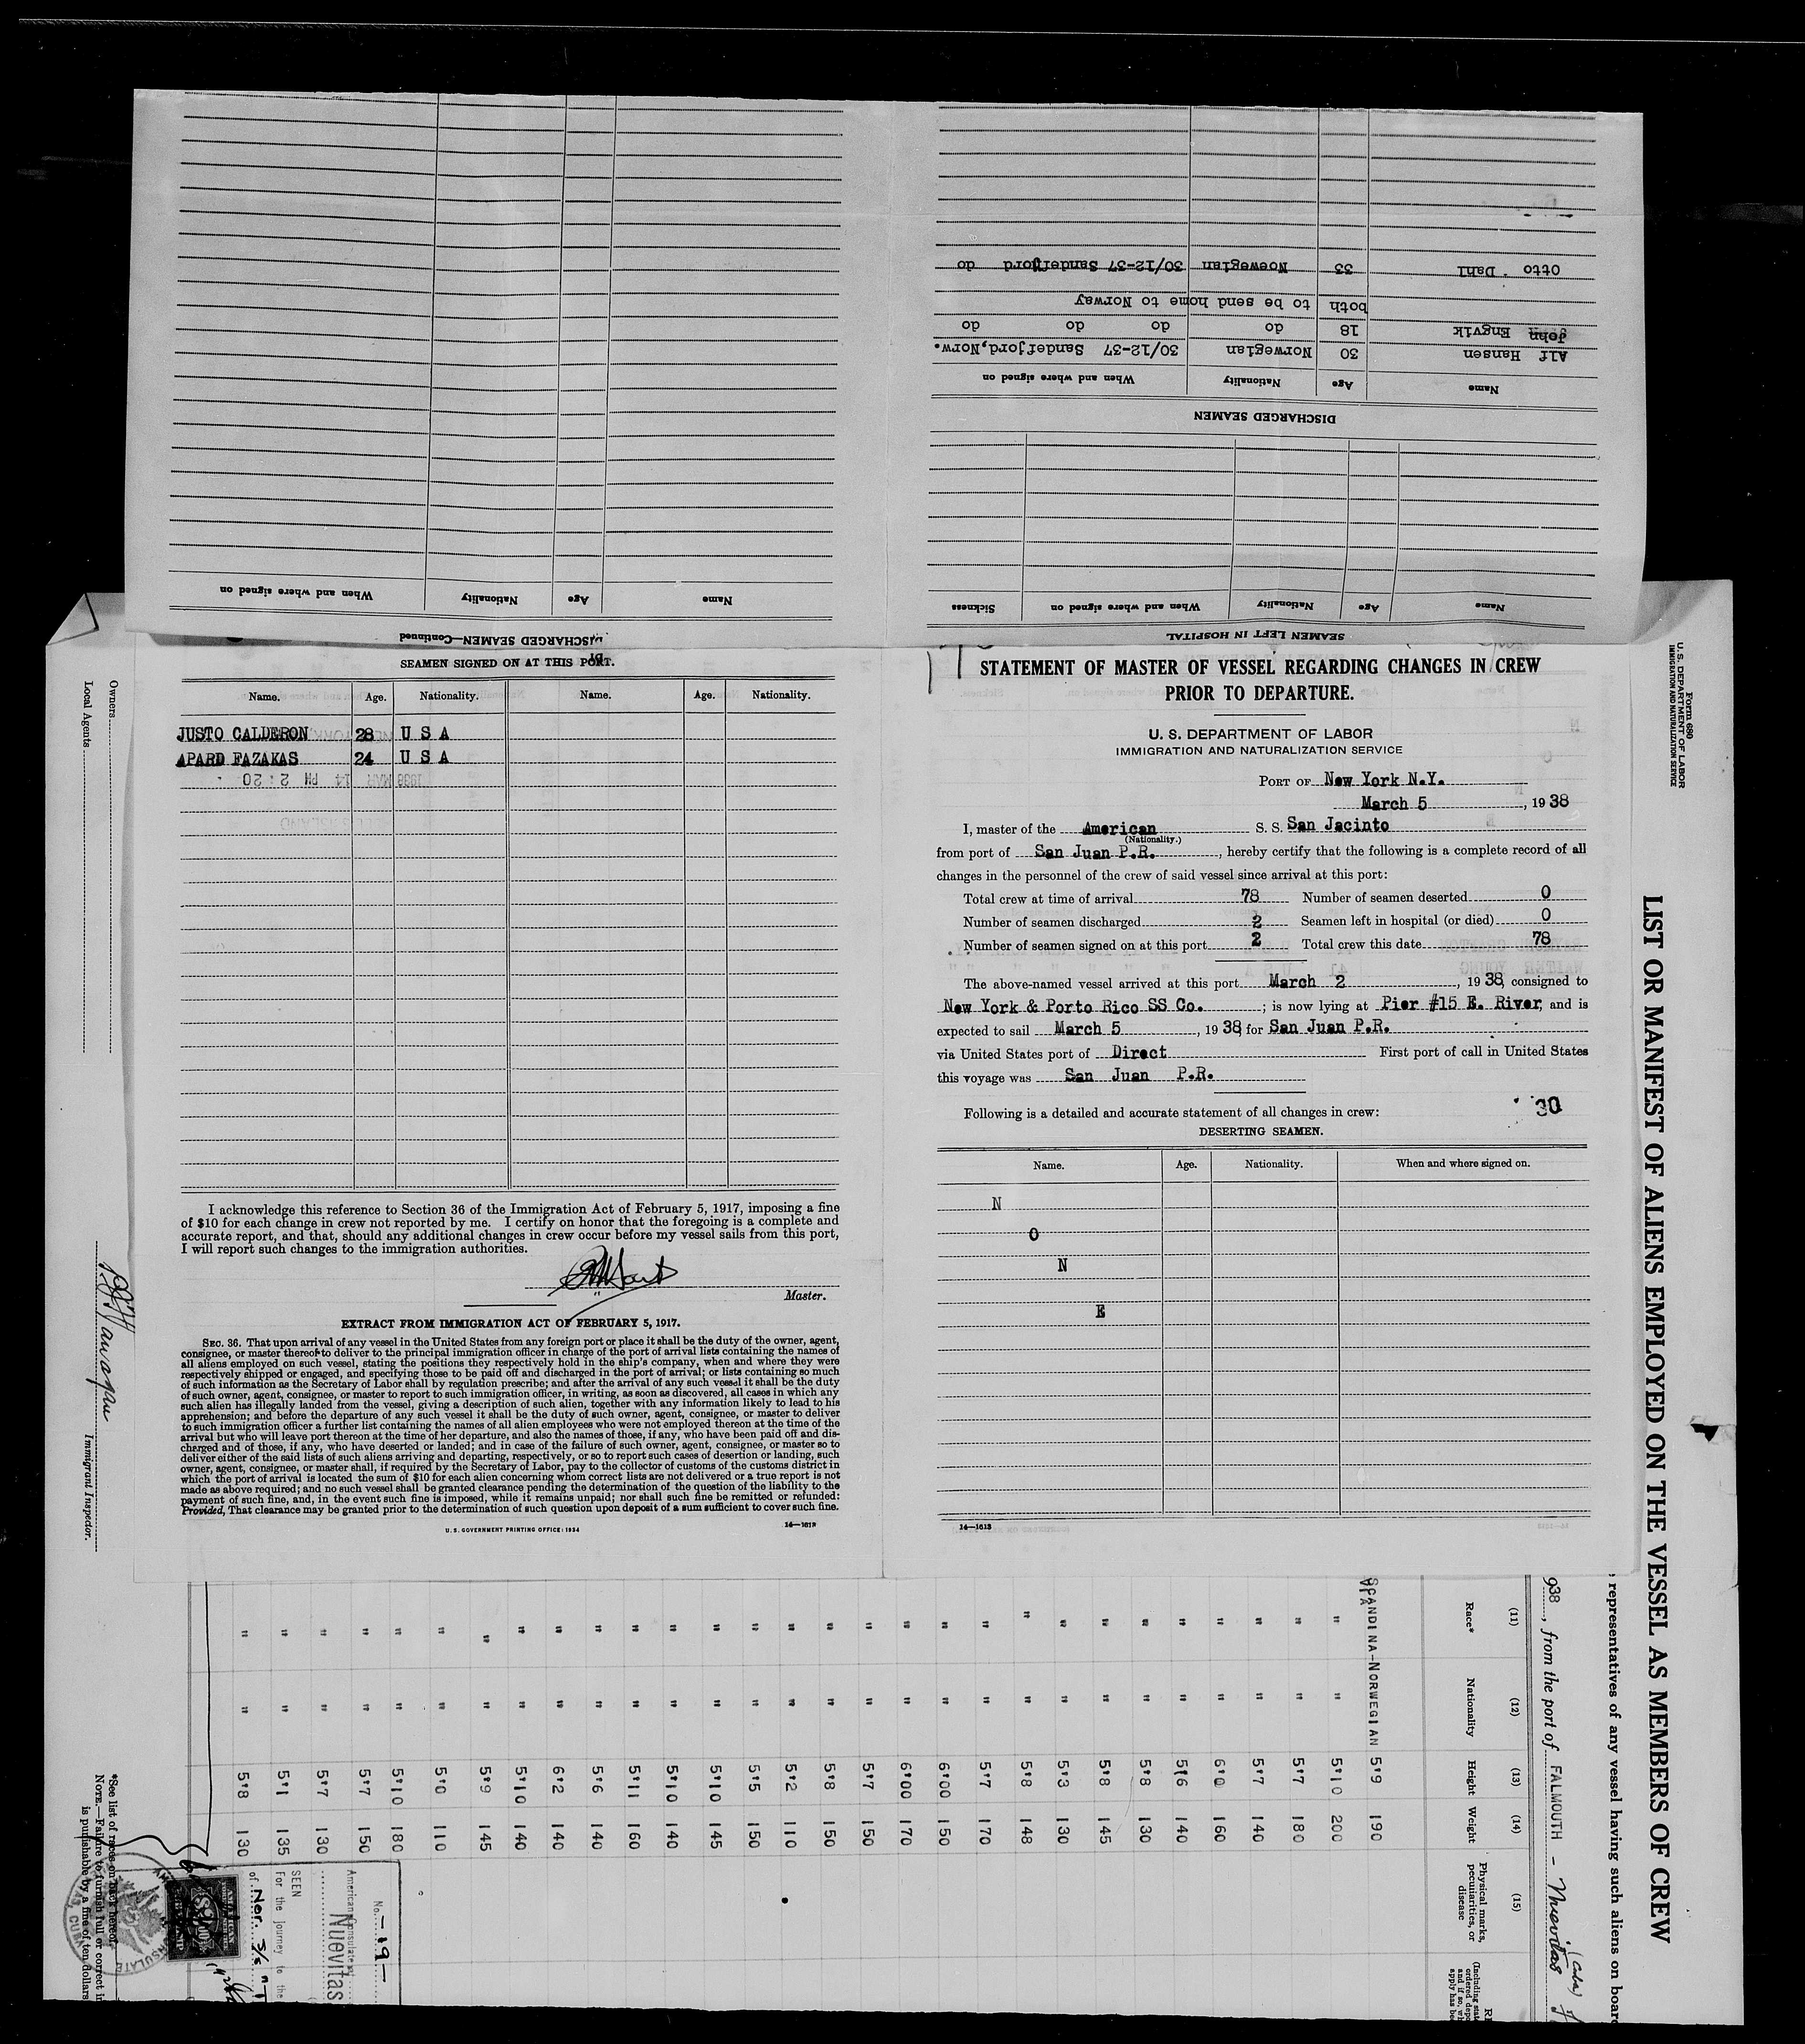 DISCHARGED SEAMEN—Continued
Name
Age
Nationality
When and where signed on
SEAMEN LEFT IN HOSPITAL
Name
Age
Nationality
When and where signed on
Sickness
DISCHARGED SEAMEN
Name
Age
Nationality
When and where signed on
Alf Hansen 30 Norwegian 30/12-37 Sandefjord, Norw.
John Engvik 18 do do do do
both to be send home to Norway
Otto Dahl 33 Noewegian 30/12-37 Sandefjord do
SEAMEN SIGNED ON AT THIS PORT.
Name. Age. Nationality. Name. Age. Nationality.
JUSTO CALDERON 28 U S A
APARD FAZAKAS 24 U S A
1938 MAR 14 PM 2:20
I acknowledge this reference to Section 36 of the Immigration Act of February 5, 1917, imposing a fine
of $10 for each change in crew not reported by me. I certify on honor that the foregoing is a complete and
accurate report, and that, should any additional changes in crew occur before my vessel sails from this port,
I will report such changes to the immigration authorities.
Master.
EXTRACT FROM IMMIGRATION ACT OF FEBRUARY 5, 1917.
SEC. 36. That upon arrival of any vessel in the United States from any foreign port or place it shall be the duty of the owner, agent,
consignee, or master thereof to deliver to the principal immigration officer in charge of the port of arrival lists containing the names of
all aliens employed on such vessel, stating the positions they respectively hold in the ship's company, when and where they were
respectively shipped or engaged, and specifying those to be paid off and discharged in the port of arrival; or lists containing so much
of such information as the Secretary of Labor shall by regulation prescribe; and after the arrival of any such vessel it shall be the duty
of such owner, agent, consignee, or master to report to such immigration officer, in writing, as soon as discovered, all cases in which any
such alien has illegally landed from the vessel, giving a description of such alien, together with any information likely to lead to his
apprehension; and before the departure of any such vessel it shall be the duty of such owner, agent, consignee, or master to deliver
to such immigration officer a further list containing the names of all alien employees who were not employed thereon at the time of the
arrival but who will leave port thereon at the time of her departure, and also the names of those, if any, who have been paid off and dis-
charged and of those, if any, who have deserted or landed; and in case of the failure of such owner, agent, consignee, or master so to
deliver either of the said lists of such aliens arriving and departing, respectively, or so to report such cases of desertion or landing, such
owner, agent, consignee, or master shall, if required by the Secretary of Labor, pay to the collector of customs of the customs district in
which the port of arrival is located the sum of $10 for each alien concerning whom correct lists are not delivered or a true report is not
made as above required; and no such vessel shall be granted clearance pending the determination of the question of the liability to the
payment of such fine, and, in the event such fine is imposed, while it remains unpaid; nor shall such fine be remitted or refunded:
Provided, That clearance may be granted prior to the determination of such question upon deposit of a sum sufficient to cover such fine.
U. S. GOVERNMENT PRINTING OFFICE: 1934
14—1613
STATEMENT OF MASTER OF VESSEL REGARDING CHANGES IN CREW
PRIOR TO DEPARTURE.
U. S. DEPARTMENT OF LABOR
IMMIGRATION AND NATURALIZATION SERVICE
PORT OF New York N.Y.
March 5, 1938
I, master of the American S. S. San Jacinto
(Nationality.)
from port of San Juan P.R., hereby certify that the following is a complete record of all
changes in the personnel of the crew of said vessel since arrival at this port:
Total crew at time of arrival 78 Number of seamen deserted 0
Number of seamen discharged 2 Seamen left in hospital (or died) 0
Number of seamen signed on at this port 2 Total crew this date 78
The above-named vessel arrived at this port March 2, 1938, consigned to
New York & Porto Rico SS Co.; is now lying at Pier #15 E. River, and is
expected to sail March 5, 1938, for San Juan P.R.
via United States port of Direct First port of call in United States
this voyage was San Juan P.R.
Following is a detailed and accurate statement of all changes in crew: 30
DESERTING SEAMEN.
Name. Age. Nationality. When and where signed on.
N
O
N
E
14—1613
Form 680
U. S. DEPARTMENT OF LABOR
IMMIGRATION AND NATURALIZATION SERVICE
LIST OR MANIFEST OF ALIENS EMPLOYED ON THE VESSEL AS MEMBERS OF CREW
representatives of any vessel having such aliens on board
938, from the port of FALMOUTH - Nuevitas (Cuba)
(11) (12) (13) (14) (15)
Race* Nationality Height Weight Physical marks, peculiarities, or disease
SCANDINA-NORWEGIAN 5'9 190
VIA
" " 5'10 200
" " 5'7 180
" " 5'7 140
" " 6'0 160
" " 5'6 140
" " 5'8 130
" " 5'8 145
" " 5'3 130
" " 5'8 148
" " 5'7 170
" " 6'00 150
" " 6'00 170
" " 5'7 150
" " 5'8 150
" " 5'2 110
" " 5'5 150
" " 5'10 145
" " 5'10 140
" " 5'11 160
" " 5'6 140
" " 6'2 140
" " 5'10 140
" " 5'9 145
" " 5'0 110
" " 5'10 180
" " 5'7 150
" " 5'7 130
" " 5'1 135
" " 5'8 130
No. -19-
American Consulate at
Nuevitas
SEEN
For the journey to the
of Nor. M/S
Owners
Local Agents
Immigrant Inspector.
*See list of races on back hereof.
NOTE.—Failure to furnish full or correct in
is punishable by a fine of ten dollars